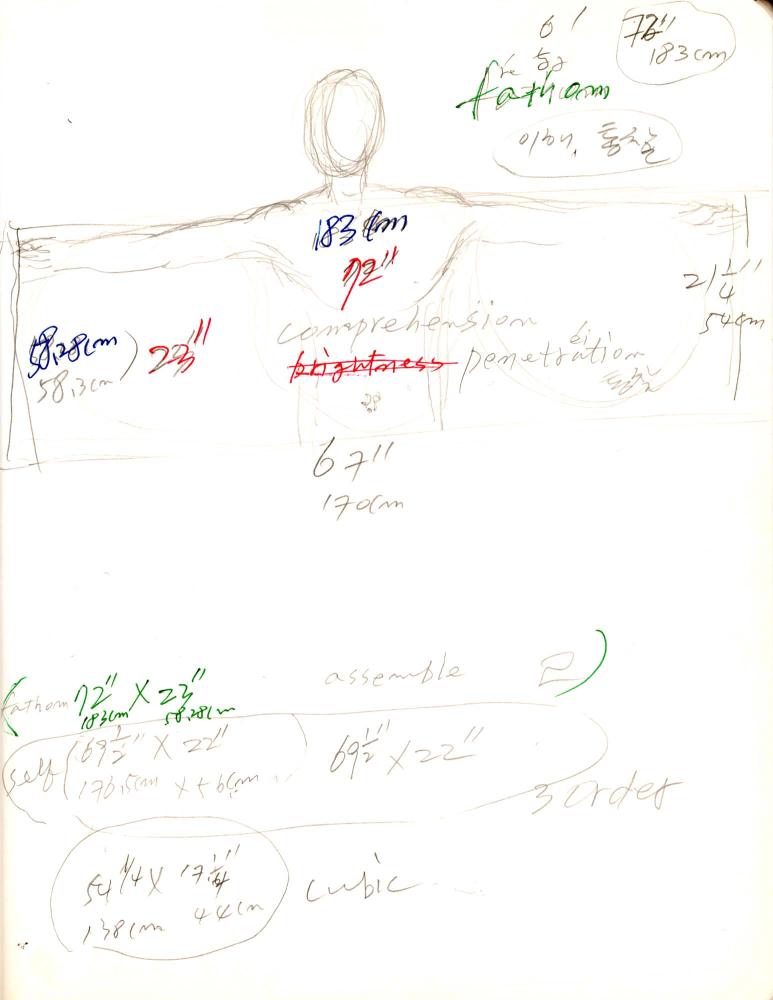 6'
72"
183cm
fathom
이해, 통찰
183cm
72"
21 1/4"
54cm
58.28cm
58.3cm
23"
comprehension
brightness penetration
67"
170cm
fathom 72" X 23"
183cm 58.28cm
assemble
self 69 1/2" X 22"
69 1/2" X 22"
176.5cm X 56cm
3 order
54 1/4 X 17 1/4"
138cm 44cm
cubic